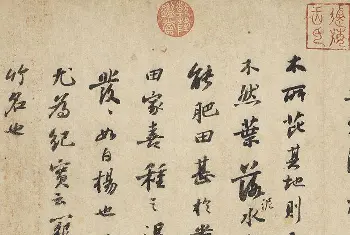 木所芘其地則
木然葉落泥水
能肥田甚於
田家喜種之得
發〻如白楊也
尤為紀實云籠
竹名也